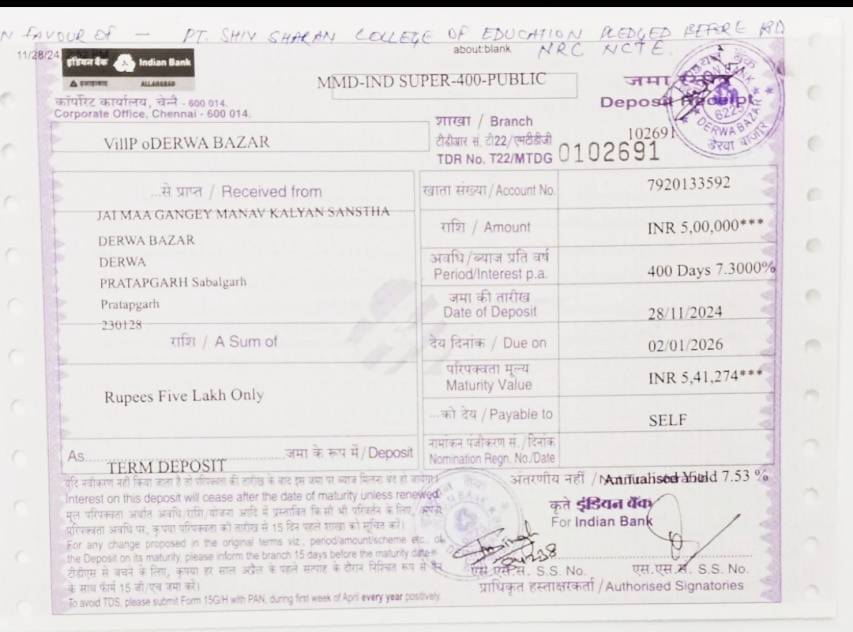 N FAVOUR OF — PT. SHIV SHARAN COLLEGE OF EDUCATION PLEDGED BEFORE RD
NRC NCTE.
about:blank
11/28/24
इंडियन बैंक Indian Bank
इलाहाबाद ALLAHABAD
कॉर्पोरेट कार्यालय, चेन्नै - 600 014.
Corporate Office, Chennai - 600 014.
MMD-IND SUPER-400-PUBLIC
जमा रसीद
Deposit Receipt
VillP oDERWA BAZAR
शाखा / Branch
102691
टीडीआर सं. टी22/एमटीडीजी
TDR No. T22/MTDG 0102691
6225
DERWA BAZAR
डेरवा बाजार
...से प्राप्त / Received from
JAI MAA GANGEY MANAV KALYAN SANSTHA
DERWA BAZAR
DERWA
PRATAPGARH Sabalgarh
Pratapgarh
230128
राशि / A Sum of
Rupees Five Lakh Only
As TERM DEPOSIT जमा के रूप में / Deposit
खाता संख्या/Account No. 7920133592
राशि / Amount INR 5,00,000***
अवधि/ब्याज प्रति वर्ष
Period/Interest p.a. 400 Days 7.3000%
जमा की तारीख
Date of Deposit 28/11/2024
देय दिनांक / Due on 02/01/2026
परिपक्वता मूल्य
Maturity Value INR 5,41,274***
...को देय / Payable to SELF
नामांकन पंजीकरण सं./दिनांक
Nomination Regn. No./Date
अंतरणीय नहीं / Annualised Yield 7.53 %
यदि नवीकरण नहीं किया जाता है तो परिपक्वता की तारीख के बाद इस जमा पर ब्याज मिलना बंद हो जायेगा
Interest on this deposit will cease after the date of maturity unless renewed
मूल परिपक्वता अर्थात अवधि/राशि/योजना आदि में प्रस्तावित किसी भी परिवर्तन के लिए,
परिपक्वता अवधि पर, कृपया परिपक्वता की तारीख से 15 दिन पहले शाखा को सूचित करें।
For any change proposed in the original terms viz., period/amount/scheme etc., of
the Deposit on its maturity, please inform the branch 15 days before the maturity date
टीडीएस से बचने के लिए, कृपया हर साल अप्रैल के पहले सप्ताह के दौरान निश्चित रूप से पैन
के साथ फॉर्म 15 जी/एच जमा करें।
To avoid TDS, please submit Form 15G/H with PAN, during first week of April every year positively.
कृते इंडियन बैंक
For Indian Bank
एस.एस.सं. S.S. No. एस.एस.सं. S.S. No.
प्राधिकृत हस्ताक्षरकर्ता / Authorised Signatories